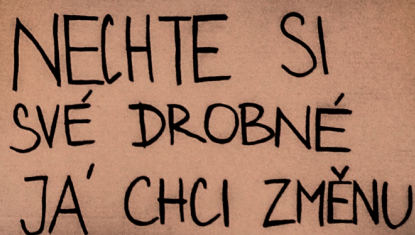 NECHTE SI
SVÉ DROBNÉ
JÁ CHCI ZMĚNU